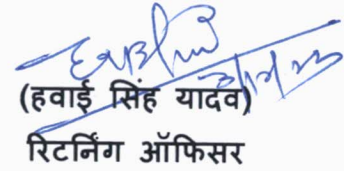 (हवाई सिंह यादव)
रिटर्निंग ऑफिसर